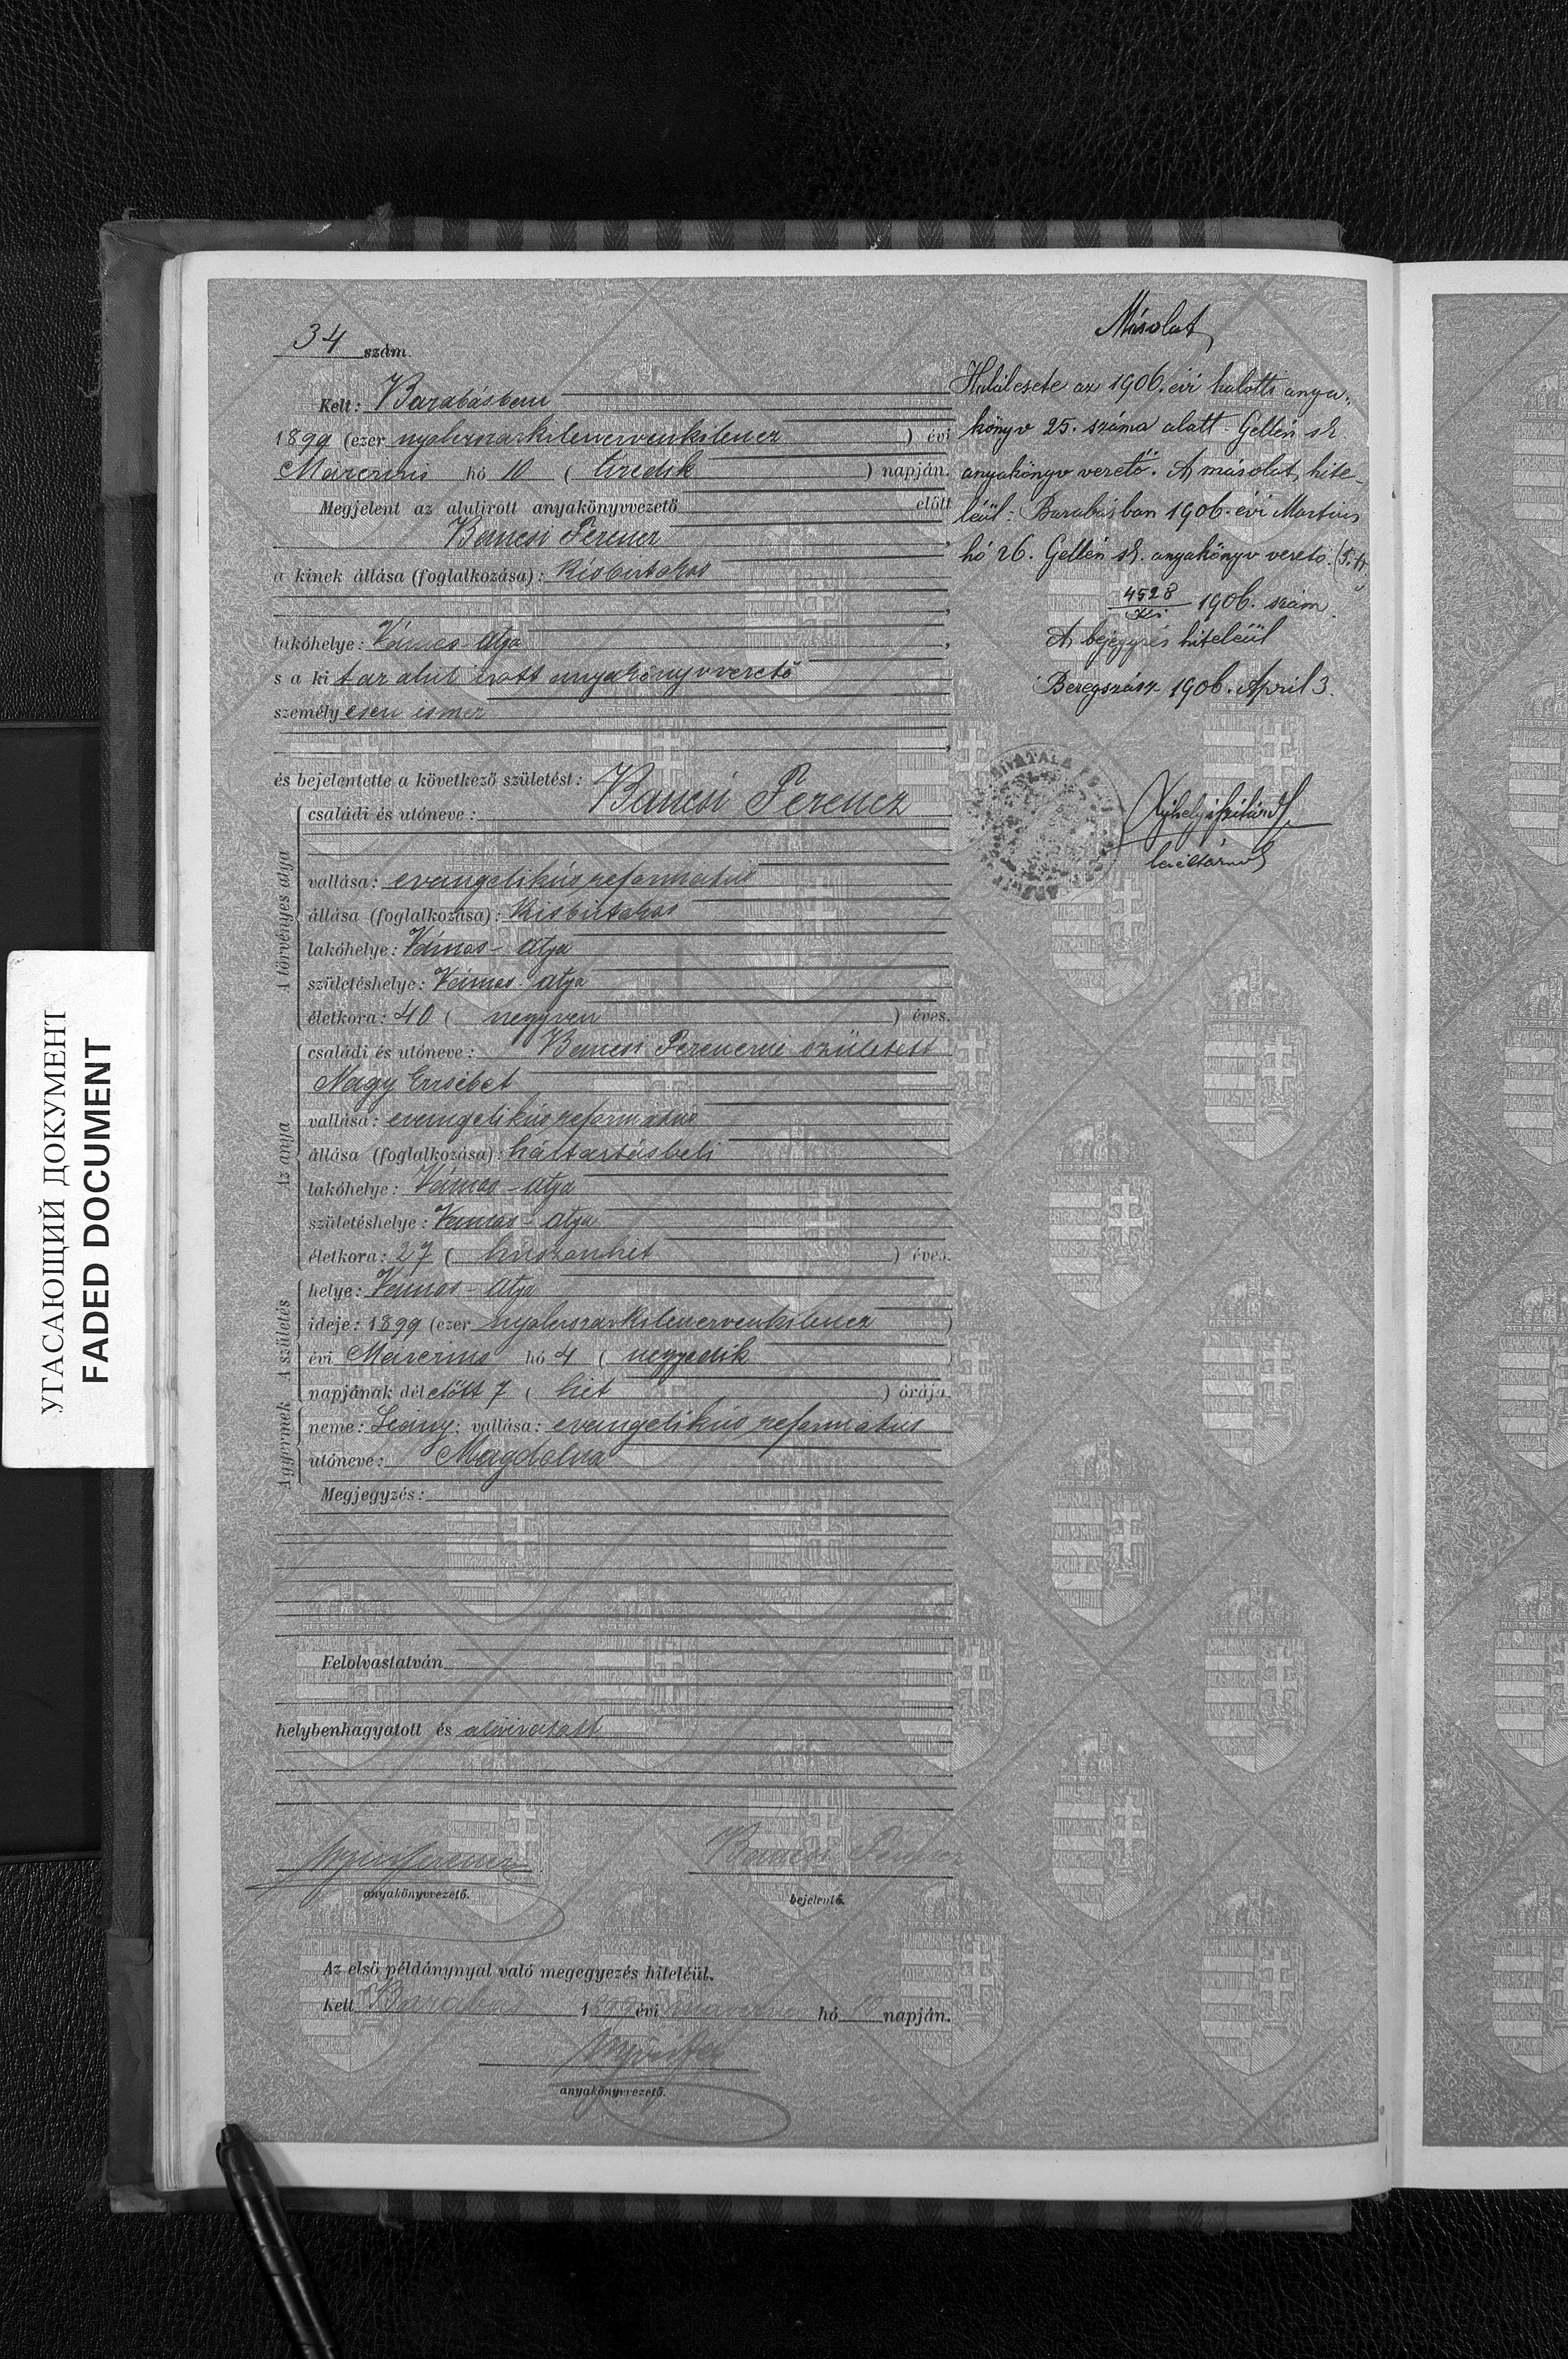 34 szám.
Kelt: Barabásban
1899 (ezer nyolczszázkilenczvenkilencz) évi
Márczius hó 10 (tizedik) napján.
Megjelent az alulirott anyakönyvvezető előtt
Bancsi Ferencz,
a kinek állása (foglalkozása): Kisbirtokos
,
lakóhelye: Vámos-Atya,
s a kit az alulirott anyakönyvvezető
személyesen ismer
,
és bejelentette a következő születést:
A törvényes atyja
családi és utóneve: Bancsi Ferencz
vallása: evangelikus református
állása (foglalkozása): Kisbirtokos
lakóhelye: Vámos-Atya
születéshelye: Vámos-Atya
életkora: 40 (negyven) éves.
Az anya
családi és utóneve: Bancsi Ferenczné született
Nagy Erzsébet
vallása: evangelikus református
állása (foglalkozása): háztartásbeli
lakóhelye: Vámos-Atya
születéshelye: Vámos-Atya
életkora: 27 (huszonhét) éves.
A születés
helye: Vámos-Atya
ideje: 1899 (ezer nyolczszázkilenczvenkilencz)
évi Márczius hó 4 (negyedik)
napjának délelőtt 7 (hét) órája.
A gyermek
neme: Leány; vallása: evangelikus református
utóneve: Magdolna
Megjegyzés:
Felolvastatván
helybenhagyatott és aláiratott
anyakönyvvezető.
Bancsi Ferencz
bejelentő.
Az első példánynyal való megegyezés hiteléül.
Kelt Barabás 1899 évi márcz hó 10 napján.
anyakönyvvezető.
Másolat
Halálesete az 1906. évi halotti anya-
könyv 25. száma alatt. Gellén sk
anyakönyv vezető. A másolat hite-
léül: Barabásban 1906. évi Martius
hó 26. Gellén sk. anyakönyv vezető.
4528 1906. szám.
A bejegyzés hiteléül
Beregszász 1906. April 3.
УГАСАЮЩИЙ ДОКУМЕНТ
FADED DOCUMENT